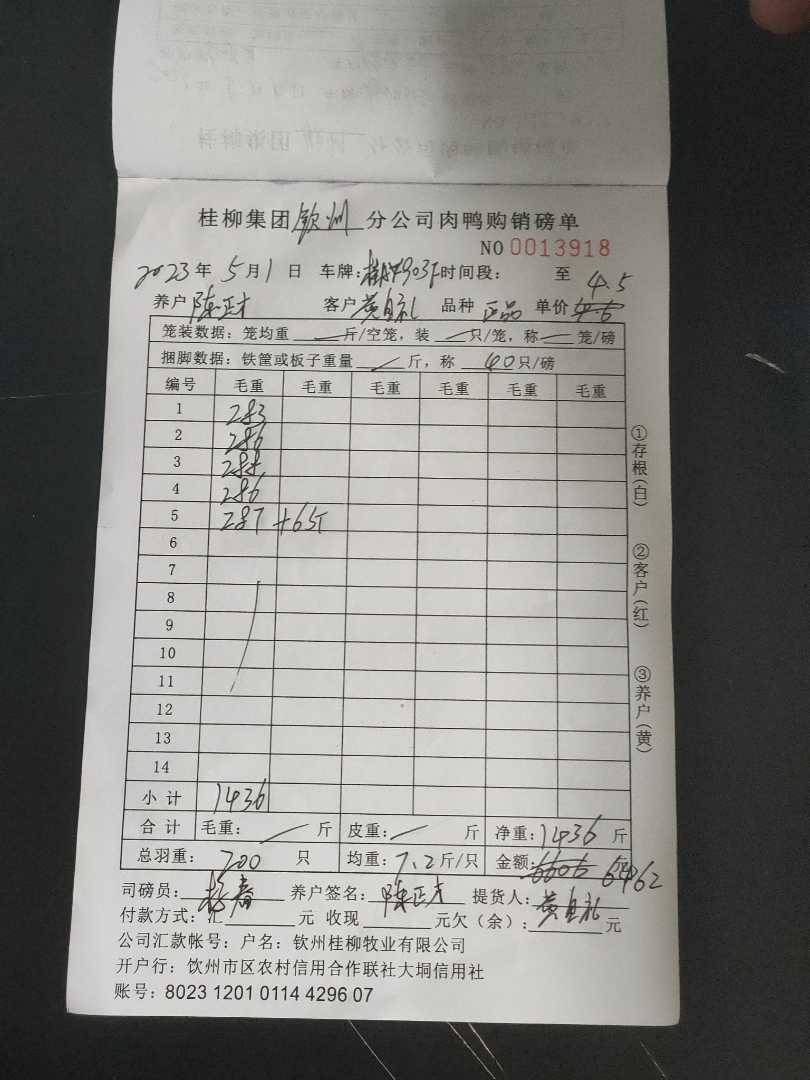 桂柳集团 钦州 分公司肉鸭购销磅单
NO 0013918
2023年 5月1日 车牌: 时间段: 至
4.5
养户 陈正才 客户 黄自礼 品种 正品 单价
笼装数据: 笼均重 斤/空笼, 装 只/笼, 称 笼/磅
捆脚数据: 铁筐或板子重量 斤, 称 40 只/磅
编号 毛重 毛重 毛重 毛重 毛重 毛重
1 283
2 286
3
4 286
5 287
6
7
8
9
10
11
12
13
14
小计 1436
合计 毛重: 斤 皮重: 斤 净重: 1436 斤
总羽重: 200 只 均重: 7.2 斤/只 金额: 6606 元 6462
司磅员: 养户签名: 陈正才 提货人: 黄自礼
付款方式: 汇 元 收现 元欠(余): 元
公司汇款帐号: 户名: 钦州桂柳牧业有限公司
开户行: 饮州市区农村信用合作联社大垌信用社
账号: 8023 1201 0114 4296 07
①存根(白)
②客户(红)
③养户(黄)